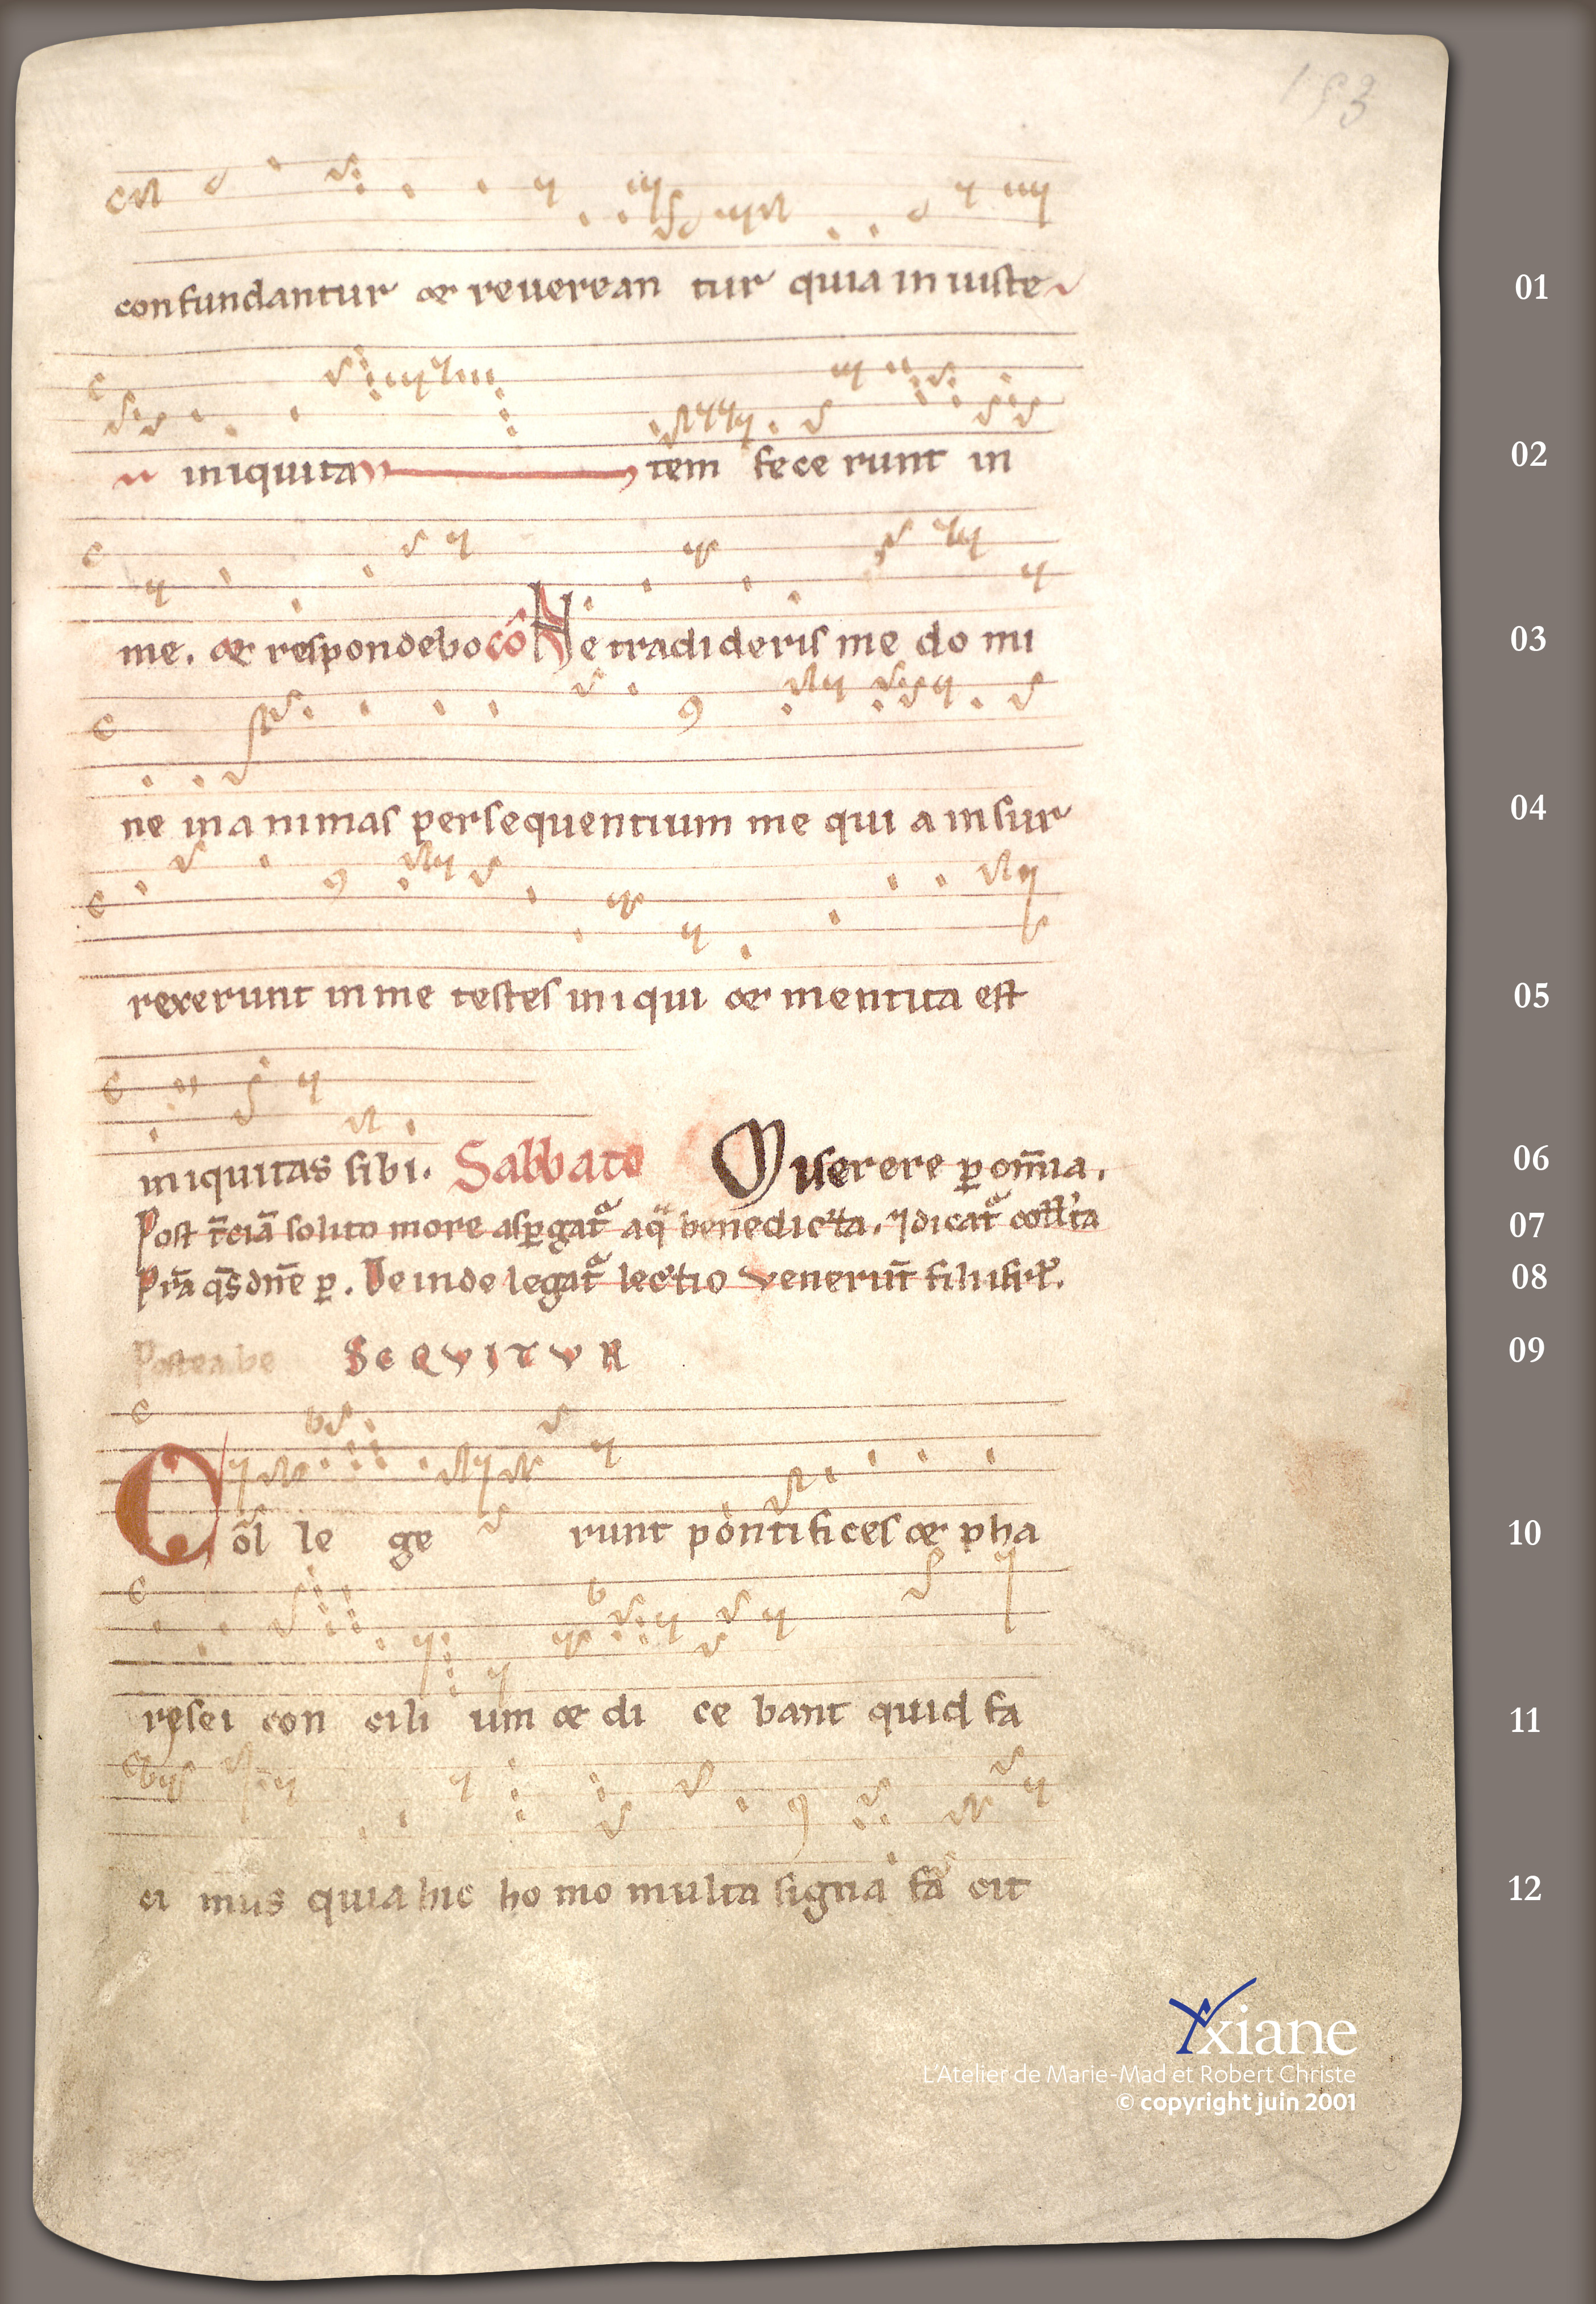 153
confundantur et reuerean tur quia in iuste
01
iniquita tem fece runt in
02
me. et respondebo cō Ne tradideris me do mi
03
ne in a nimas persequentium me qui a insur
04
rexerunt in me testes iniqui et mentita est
05
iniquitas sibi. Sabbato Miserere ꝑ om̄ia.
06
Post t̄ciā solito more asꝑgat᷑ aq̄ benedicta. ⁊ dicat᷑
07
P̄ra q̄s dn̄e ꝑ. Deinde legat᷑ lectio venerūt filii
08
Postea be SEQVITVR
09
Col le ge runt pontifices et pha
10
rysei con cili um et di ce bant quid fa
11
ci mus quia hic ho mo multa signa fa cit
12
yxiane
L'Atelier de Marie-Mad et Robert Christe
© copyright juin 2001